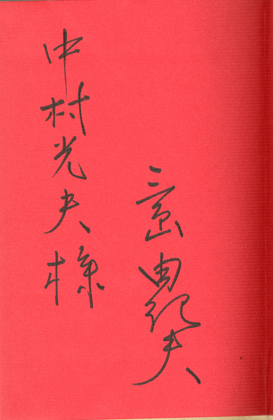 三島由紀夫
中村光夫様